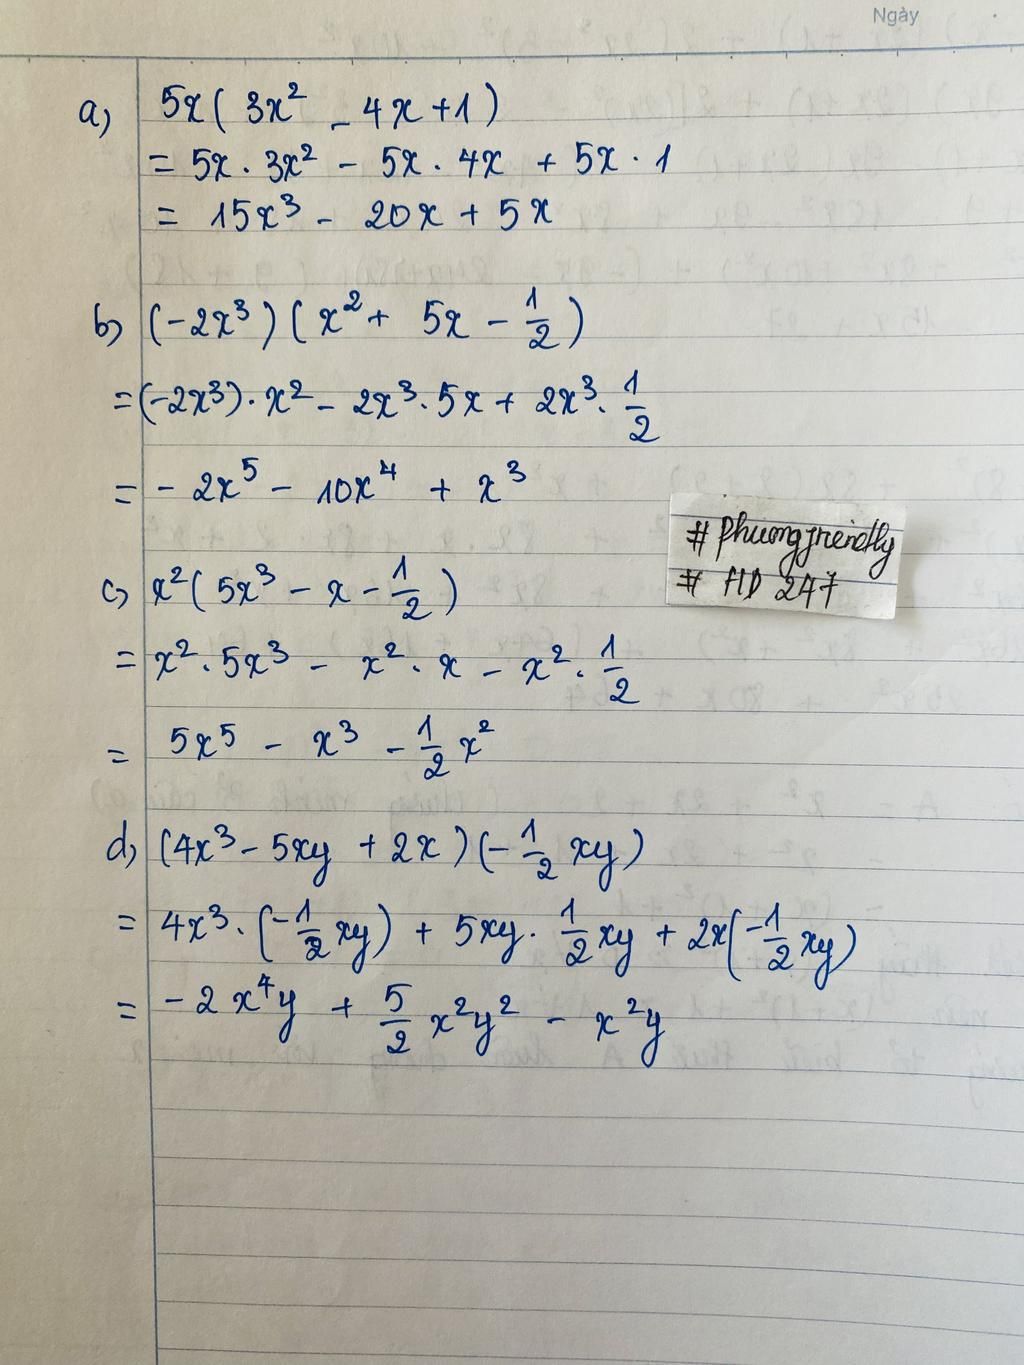 Ngày
a) 5x( 3x² - 4x + 1 )
= 5x . 3x² - 5x . 4x + 5x . 1
= 15x³ - 20x + 5x
b) (-2x³)( x² + 5x - 1/2 )
= (-2x³) . x² - 2x³ . 5x + 2x³ . 1/2
= - 2x⁵ - 10x⁴ + x³
# phuongfriendly
# HD 247
c) x²( 5x³ - x - 1/2 )
= x² . 5x³ - x² . x - x² . 1/2
= 5x⁵ - x³ - 1/2 x²
d) (4x³ - 5xy + 2x)(- 1/2 xy)
= 4x³ . (- 1/2 xy) + 5xy . 1/2 xy + 2x(- 1/2 xy)
= - 2x⁴y + 5/2 x²y² - x²y